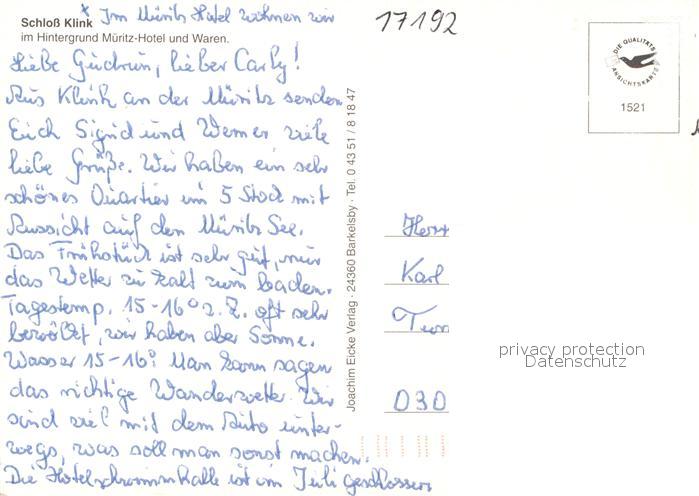 * Im Müritz Hotel wohnen wir
17192
Schloß Klink
im Hintergrund Müritz-Hotel und Waren.
Liebe Gudrun, lieber Carly!
Aus Klink an der Müritz senden
Euch Sigrid und Werner viele
liebe Grüße. Wir haben ein sehr
schönes Quartier im 5 Stock mit
Aussicht auf den Müritz See.
Das Frühstück ist sehr gut, nur
das Wetter zu kalt zum baden.
Tagestemp. 15-16° z. Z. oft sehr
bewölkt, wir haben aber Sonne.
Wasser 15-16°! Man kann sagen
das richtige Wanderwetter. Wir
sind viel mit dem Auto unter-
wegs, was soll man sonst machen.
Die Hotelschwimmhalle ist im Juli geschlossen
Joachim Eicke Verlag · 24360 Barkelsby · Tel. 0 43 51 / 8 18 47
DIE QUALITÄTS
ANSICHTSKARTE
1521
Herr
Karl
D30
privacy protection
Datenschutz